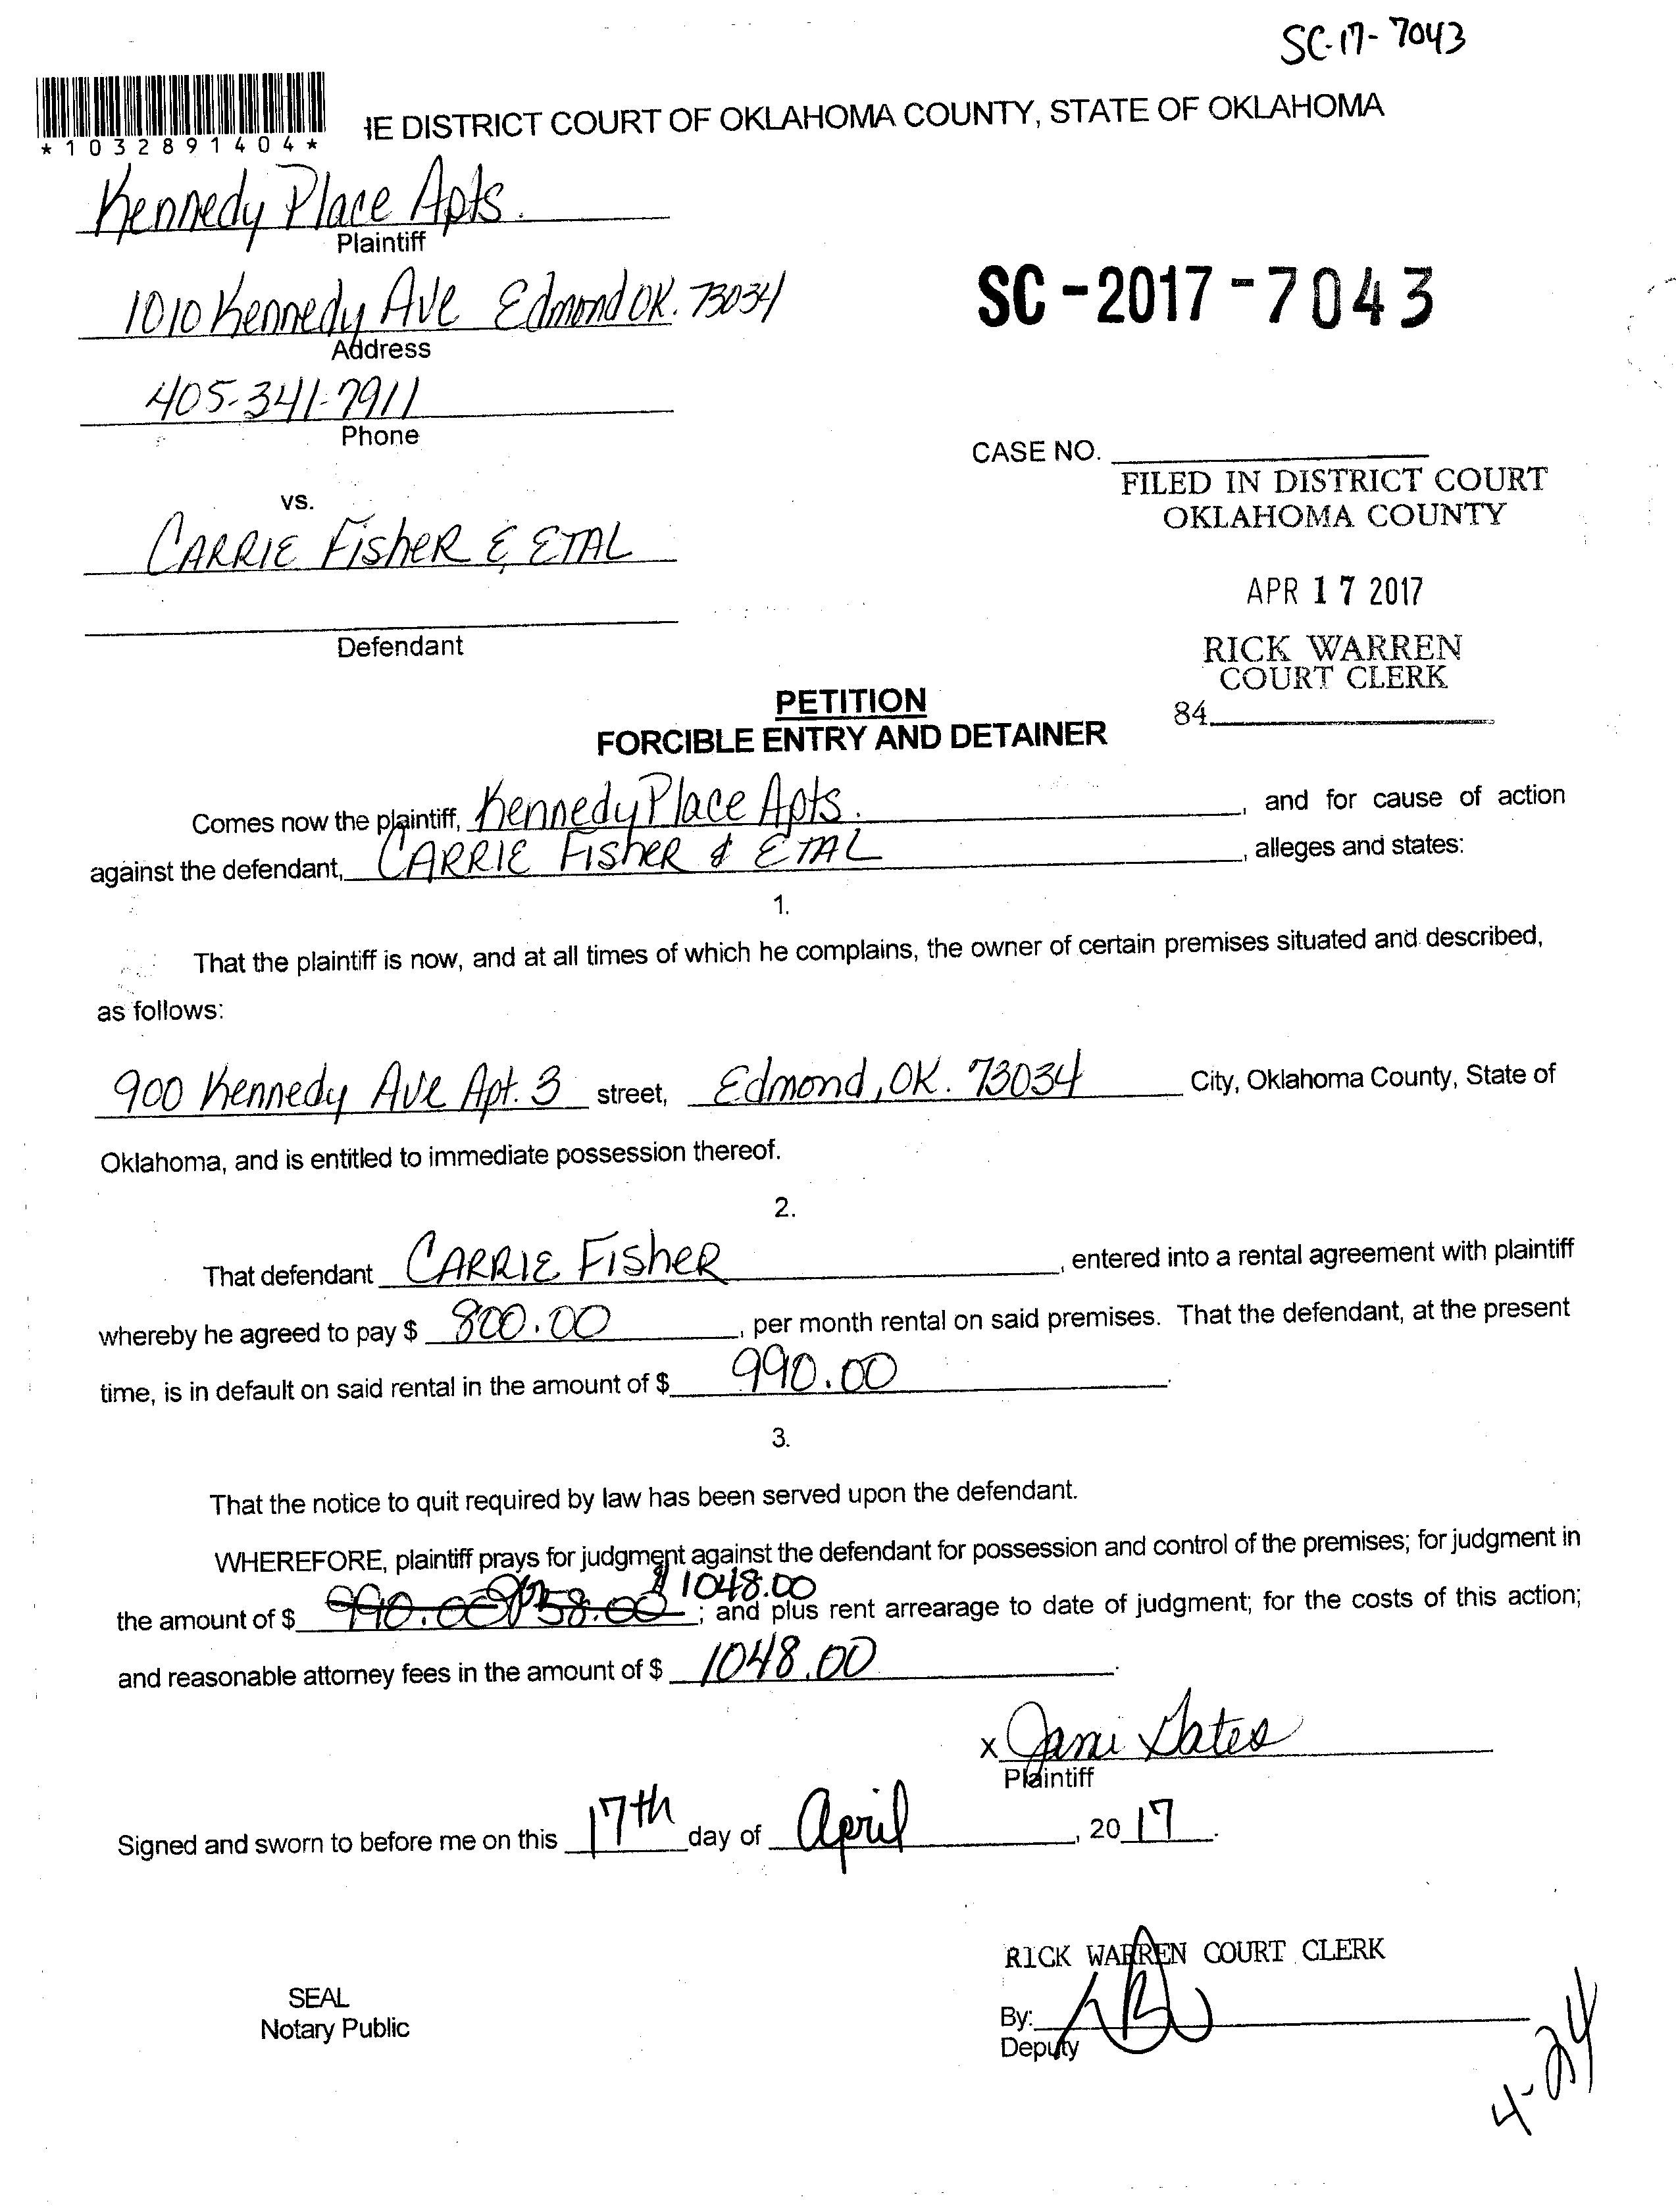 SC-17-7043
*1032891404*
HE DISTRICT COURT OF OKLAHOMA COUNTY, STATE OF OKLAHOMA
Kennedy Place Apts.
Plaintiff
1010 Kennedy Ave Edmond OK. 73034
Address
SC-2017-7043
405-341-7911
Phone
CASE NO.
FILED IN DISTRICT COURT
OKLAHOMA COUNTY
vs.
CARRIE FisheR & ETAL
APR 17 2017
Defendant
RICK WARREN
COURT CLERK
84
PETITION
FORCIBLE ENTRY AND DETAINER
Comes now the plaintiff, Kennedy Place Apts. , and for cause of action
against the defendant, CARRIE FisheR & ETAL , alleges and states:
1.
That the plaintiff is now, and at all times of which he complains, the owner of certain premises situated and described,
as follows:
900 Kennedy Ave Apt. 3 street, Edmond, OK. 73034 City, Oklahoma County, State of
Oklahoma, and is entitled to immediate possession thereof.
2.
That defendant CARRIE FisheR , entered into a rental agreement with plaintiff
whereby he agreed to pay $ 800.00 , per month rental on said premises. That the defendant, at the present
time, is in default on said rental in the amount of $ 990.00 .
3.
That the notice to quit required by law has been served upon the defendant.
WHEREFORE, plaintiff prays for judgment against the defendant for possession and control of the premises; for judgment in
$1048.00
the amount of $ 990.00 58.00 ; and plus rent arrearage to date of judgment; for the costs of this action;
and reasonable attorney fees in the amount of $ 1048.00 .
x Jami Gates
Plaintiff
Signed and sworn to before me on this 17th day of April , 20 17.
RICK WARREN COURT CLERK
SEAL
Notary Public
By:
Deputy
4-24